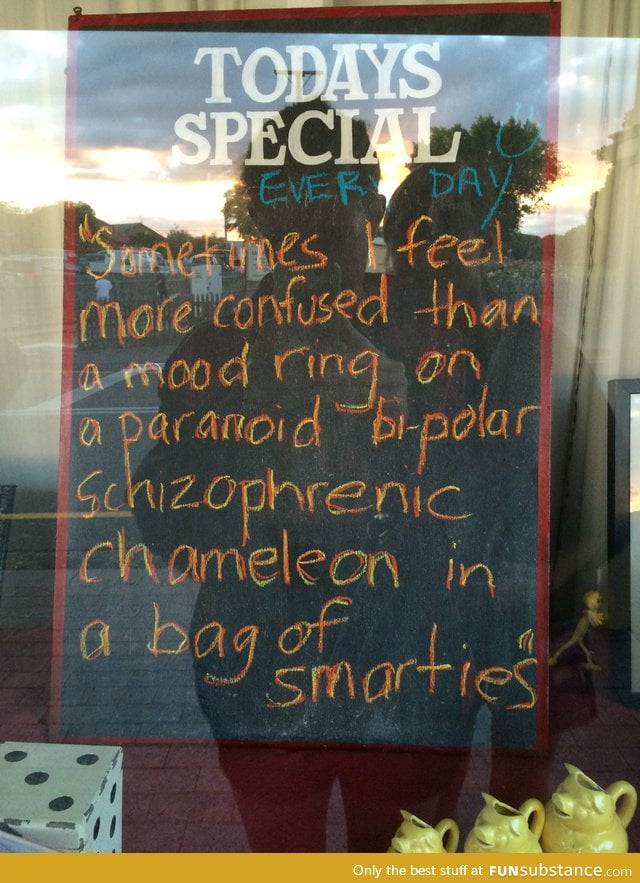 TODAYS
SPECIAL
EVERY DAY
"Sometimes I feel
more confused than
a mood ring on
a paranoid bi-polar
schizophrenic
chameleon in
a bag of
smarties"
Only the best stuff at FUNsubstance.com